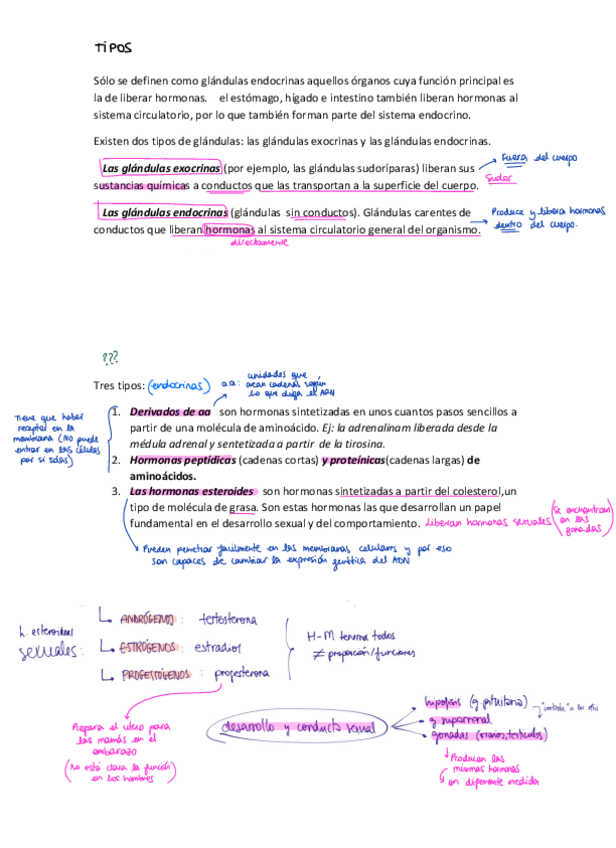 TIPOS
Sólo se definen como glándulas endocrinas aquellos órganos cuya función principal es
la de liberar hormonas. el estómago, hígado e intestino también liberan hormonas al
sistema circulatorio, por lo que también forman parte del sistema endocrino.
Existen dos tipos de glándulas: las glándulas exocrinas y las glándulas endocrinas.
Las glándulas exocrinas (por ejemplo, las glándulas sudoríparas) liberan sus
sustancias químicas a conductos que las transportan a la superficie del cuerpo.
Fuera del cuerpo
Sudor
Las glándulas endocrinas (glándulas sin conductos). Glándulas carentes de
conductos que liberan hormonas al sistema circulatorio general del organismo.
directamente
Produce y libera hormonas
dentro del cuerpo.
???
Tres tipos: (endocrinas)
aa: unidades que
crean cadenas según
lo que diga el ADN
Tiene que haber
receptor en la
membrana (NO puede
entrar en las células
por sí solas)
1. Derivados de aa son hormonas sintetizadas en unos cuantos pasos sencillos a
partir de una molécula de aminoácido. Ej: la adrenalinam liberada desde la
médula adrenal y sentetizada a partir de la tirosina.
2. Hormonas peptídicas (cadenas cortas) y proteínicas(cadenas largas) de
aminoácidos.
3. Las hormonas esteroides son hormonas sintetizadas a partir del colesterol,un
tipo de molécula de grasa. Son estas hormonas las que desarrollan un papel
fundamental en el desarrollo sexual y del comportamiento. Liberan hormonas sexuales
(se encuentran
en las
gonadas)
Pueden penetrar facilmente en las membranas celulares y por eso
son capaces de cambiar la expresión genética del ADN
h. esteroideas
sexuales:
ANDRÓGENOS: testosterona
ESTRÓGENOS: estradiol
PROGESTÓGENOS: progesterona
H-M tenemos todos
≠ proporción/funciones
Prepara el útero para
las mamás en el
embarazo
(No está clara la función
en los hombres)
desarrollo y conducta sexual
hipófisis (g. pituitaria)
g. suprarrenal
gonadas (ovarios, testículos)
Producen las
mismas hormonas
en diferente medida